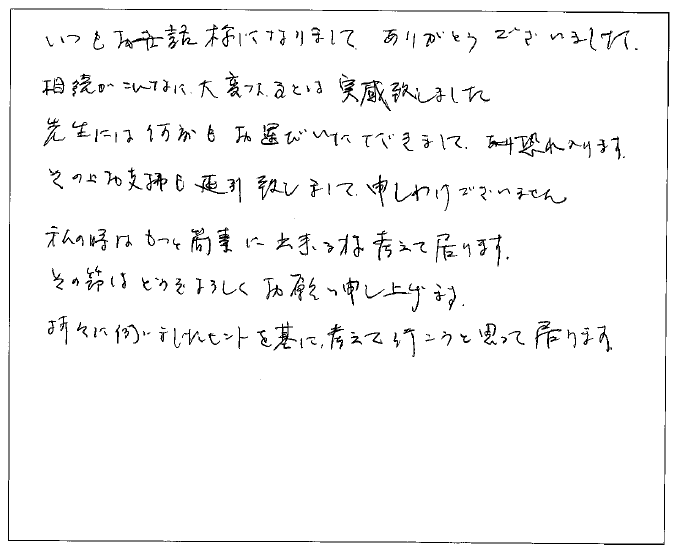 いつもお世話様になりまして、ありがとうございました。
相続がこんなに、大変なるとは実感致しました
先生には何度もお運びいただきまして、恐れ入ります。
その上お支払も延引致しまして、申しわけございません
私の時はもっと簡素に出来る様考えて居ります。
その節はどうぞよろしくお願い申し上げます。
折々に伺いましたヒントを基に、考えて行こうと思って居ります